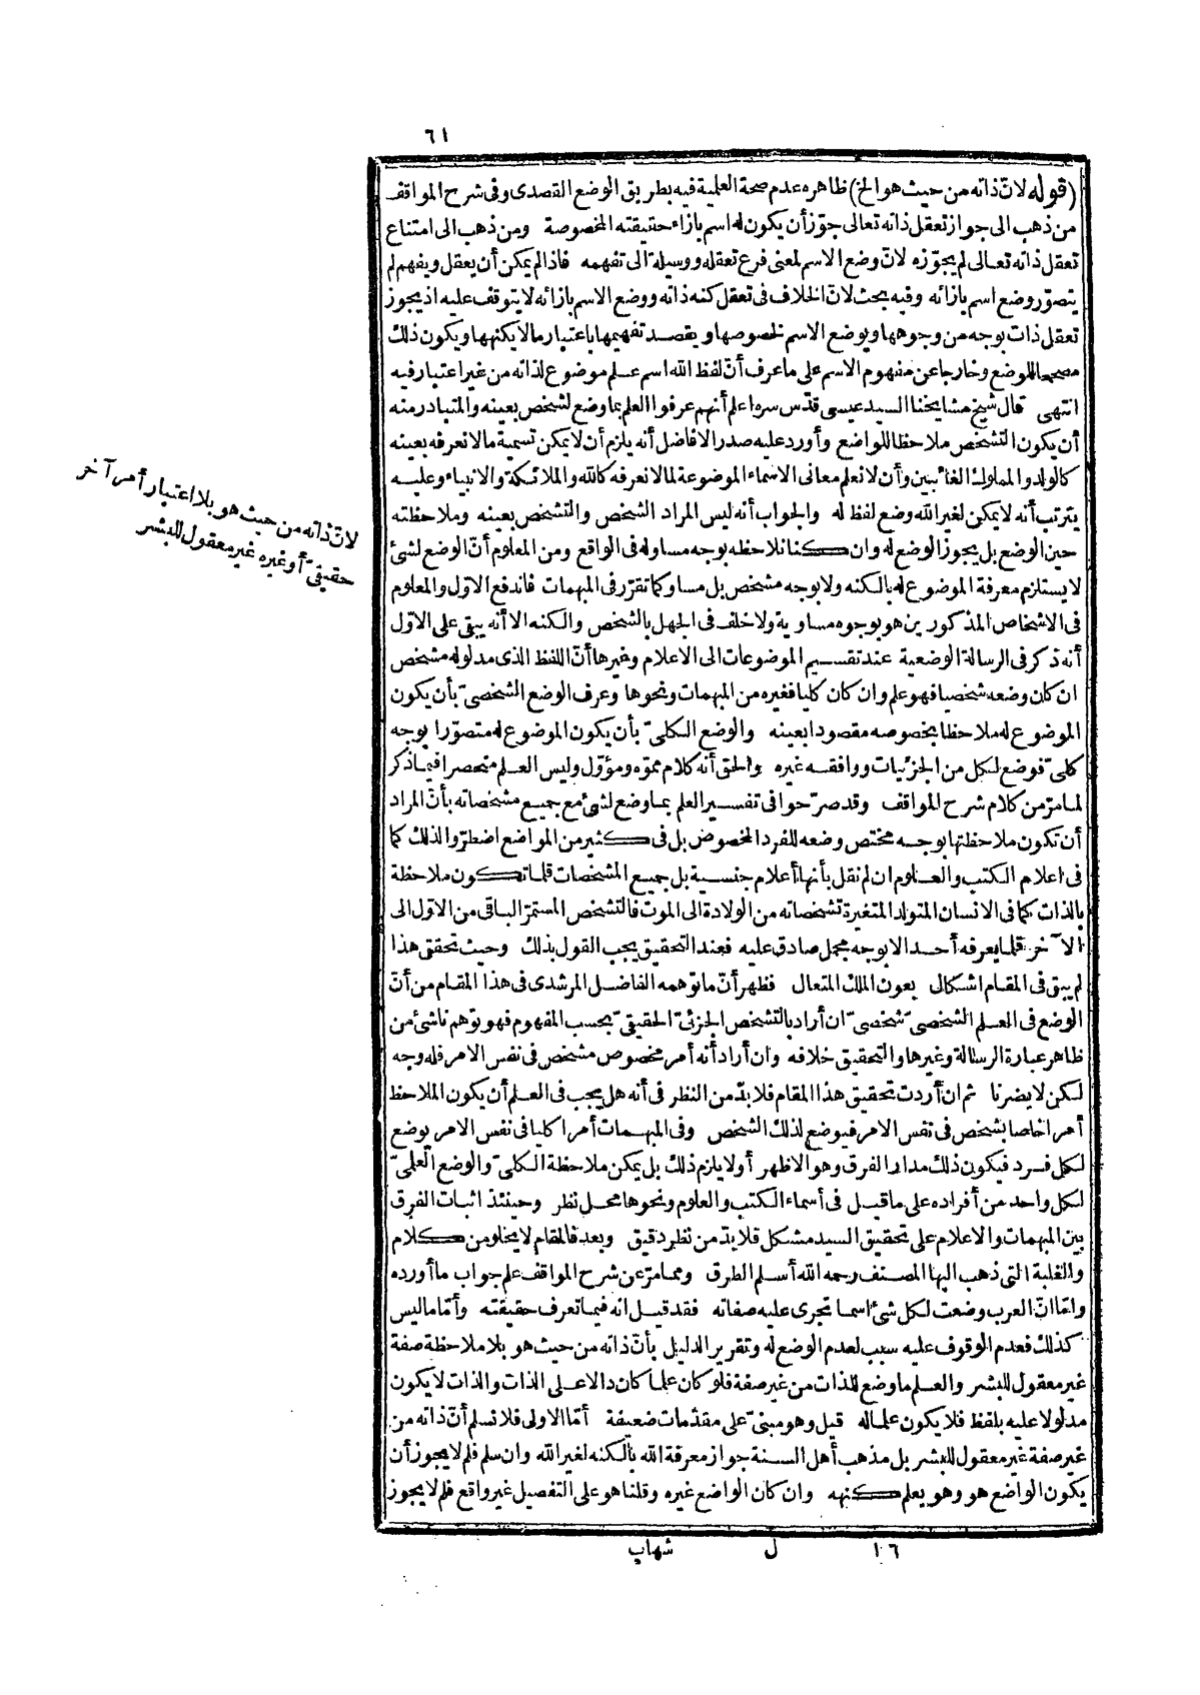 ٦١
(قوله لانّ ذاته من حيث هو الخ) ظاهره عدم صحة العلمية فيه بطريق الوضع القصدى وفى شرح المواقف
من ذهب الى جواز تعقل ذاته تعالى جوّز أن يكون له اسم بازاء حقيقته المخصوصة ومن ذهب الى امتناع
تعقل ذاته تعالى لم يجوّزه لانّ وضع الاسم لمعنى فرع تعقله ووسيلة الى تفهمه فاذا لم يمكن أن يعقل ويفهم لم
يتصوّر وضع اسم بازائه وفيه بحث لانّ الخلاف فى تعقل كنه ذاته ووضع الاسم بازائه لا يتوقف عليه اذ يجوز
تعقل ذات بوجه من وجوهها ويوضع الاسم لخصوصها ويقصد تفهيمها باعتبار ما لا بكنهها ويكون ذلك
مصححا للوضع وخارجا عن مفهوم الاسم على ما عرف أنّ لفظ الله اسم علم موضوع لذاته من غير اعتبار فيه
انتهى قال شيخ مشايخنا السيد عيسى قدّس سره اعلم أنهم عرفوا العلم بما وضع لشخص بعينه والمتبادر منه
أن يكون التشخص ملاحظا للواضع وأورد عليه صدر الافاضل أنه يلزم أن لا يمكن تسمية ما لا نعرفه بعينه
كالولد والمملوك الغائبين وأن لا نعلم معانى الاسماء الموضوعة لما لا نعرفه كالله والملائكة والانبياء وعليه
يترتب أنه لا يمكن لغير الله وضع لفظ له والجواب أنه ليس المراد الشخص والتشخص بعينه وملاحظته
حين الوضع بل يجوز الوضع له وان كنا نلاحظه بوجه مساو له فى الواقع ومن المعلوم أنّ الوضع لشئ
لا يستلزم معرفة الموضوع له بالكنه ولا بوجه مشخص بل مساو كما تقرّر فى المبهمات فاندفع الاول والمعلوم
فى الاشخاص المذكورين هو بوجوه مساوية ولا خلف فى الجهل بالشخص والكنه الا أنه يبقى على الاوّل
أنه ذكر فى الرسالة الوضعية عند تقسيم الموضوعات الى الاعلام وغيرها أنّ اللفظ الذى مدلوله مشخص
ان كان وضعه شخصيا فهو علم وان كان كليا فغيره من المبهمات ونحوها وعرف الوضع الشخصىّ بأن يكون
الموضوع له ملاحظا بخصوصه مقصودا بعينه والوضع الكلىّ بأن يكون الموضوع له متصوّرا بوجه
كلىّ فوضع لكل من الجزئيات ووافقه غيره والحق أنه كلام مموّه ومؤوّل وليس العلم منحصرا فيما ذكر
لما مرّ من كلام شرح المواقف وقد صرّحوا فى تفسير العلم بما وضع لشئ مع جميع مشخصاته بأنّ المراد
أن تكون ملاحظتها بوجه مختص وضعه للفرد المخصوص بل فى كثير من المواضع اضطرّوا لذلك كما
فى اعلام الكتب والعلوم ان لم نقل بأنها أعلام جنسية بل جميع المشخصات قلما تكون ملاحظة
بالذات كما فى الانسان المتولد المتغيرة تشخصاته من الولادة الى الموت فالتشخص المستمرّ الباقى من الاوّل الى
الآخر قلما يعرفه أحد الا بوجه مجمل صادق عليه فعند التحقيق يجب القول بذلك وحيث تحقق هذا
لم يبق فى المقام اشكال بعون الملك المتعال فظهر أنّ ما توهمه الفاضل المرشدى فى هذا المقام من أنّ
الوضع فى العلم الشخصىّ شخصىّ ان أراد بالتشخص الجزئىّ الحقيقىّ بحسب المفهوم فهو توهم ناشئ من
ظاهر عبارة الرسالة وغيرها والتحقيق خلافه وان أراد أنه أمر مخصوص مشخص فى نفس الامر فله وجه
لكن لا يضرنا ثم ان أردت تحقيق هذا المقام فلا بدّ من النظر فى أنه هل يجب فى العلم أن يكون الملاحظ
أمرا خاصا بشخص فى نفس الامر فيوضع لذلك الشخص وفى المبهمات أمرا كليا فى نفس الامر يوضع
لكل فرد فيكون ذلك مدار الفرق وهو الاظهر أو لا يلزم ذلك بل يمكن ملاحظة الكلىّ والوضع العلمىّ
لكل واحد من أفراده على ما قيل فى أسماء الكتب والعلوم ونحوها محل نظر وحينئذ اثبات الفرق
بين المبهمات والاعلام على تحقيق السيد مشكل فلا بدّ من نظر دقيق وبعد فالمقام لا يخلو من كلام
والغلبة التى ذهب اليها المصنف رحمه الله أسلم الطرق ومما مرّ عن شرح المواقف علم جواب ما أورده
وامّا انّ العرب وضعت لكل شئ اسما تجرى عليه صفاته فقد قيل انه فيما تعرف حقيقته وأمّا ما ليس
كذلك فعدم الوقوف عليه سبب لعدم الوضع له وتقرير الدليل بأنّ ذاته من حيث هو بلا ملاحظة صفة
غير معقول للبشر والعلم ما وضع للذات من غير صفة فلو كان علما كان دالا على الذات والذات لا يكون
مدلولا عليه بلفظ فلا يكون علما له قيل وهو مبنىّ على مقدّمات ضعيفة أمّا الاولى فلا نسلم أنّ ذاته من
غير صفة غير معقول للبشر بل مذهب أهل السنة جواز معرفة الله بالكنه لغير الله وان سلم فلم لا يجوز أن
يكون الواضع هو وهو يعلم كنهه وان كان الواضع غيره وقلنا هو على التفصيل غير واقع فلم لا يجوز
لانّ ذاته من حيث هو بلا اعتبار أمر آخر
حقيقىّ أو غيره غير معقول للبشر
١٦ ل شهاب